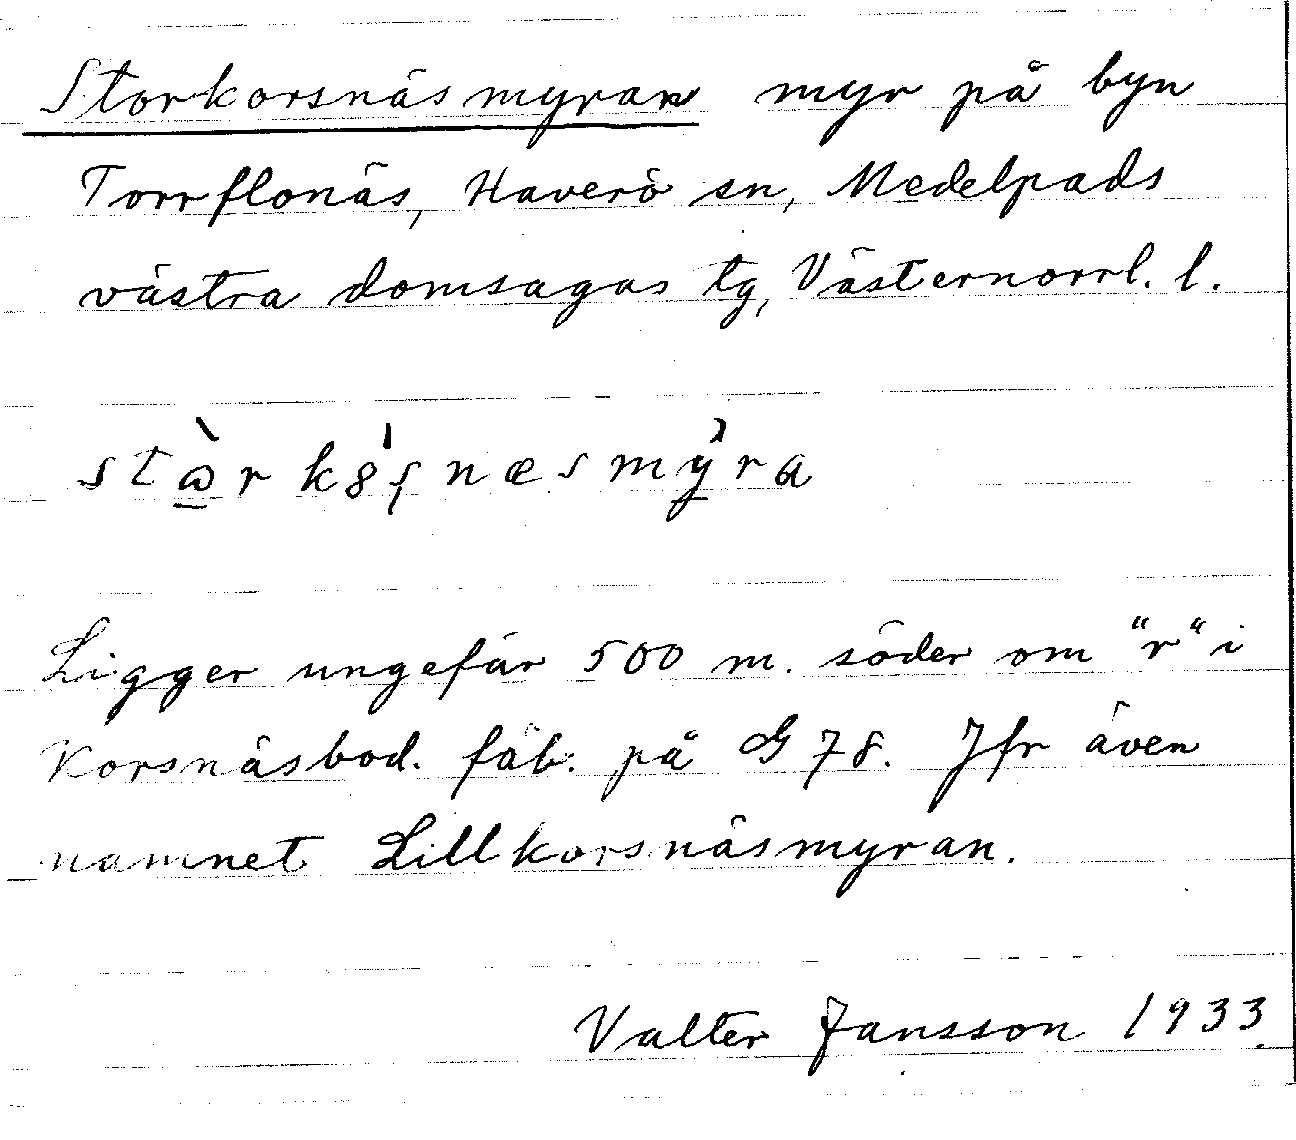 Storkorsnäsmyran myr på byn
Torrflonäs, Haverö sn, Medelpads
västra domsagas tg, Västernorrl. l.
Ligger ungefär 500 m. söder om "r" i
Korsnäsbod. fäb. på G 78. Jfr även
namnet Lillkorsnäsmyran.
Valter Jansson 1933.